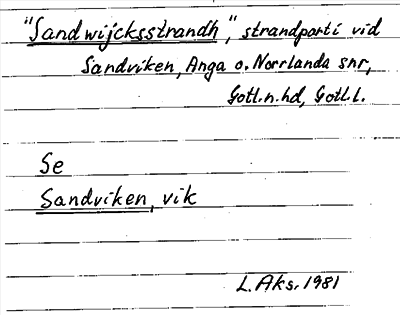 "Sandwijcksstrandh", strandparti vid
Sandviken, Anga o. Norrlanda snr,
Gotl.n.hd, Gotl.l.
Se
Sandviken, vik
L. Aks. 1981